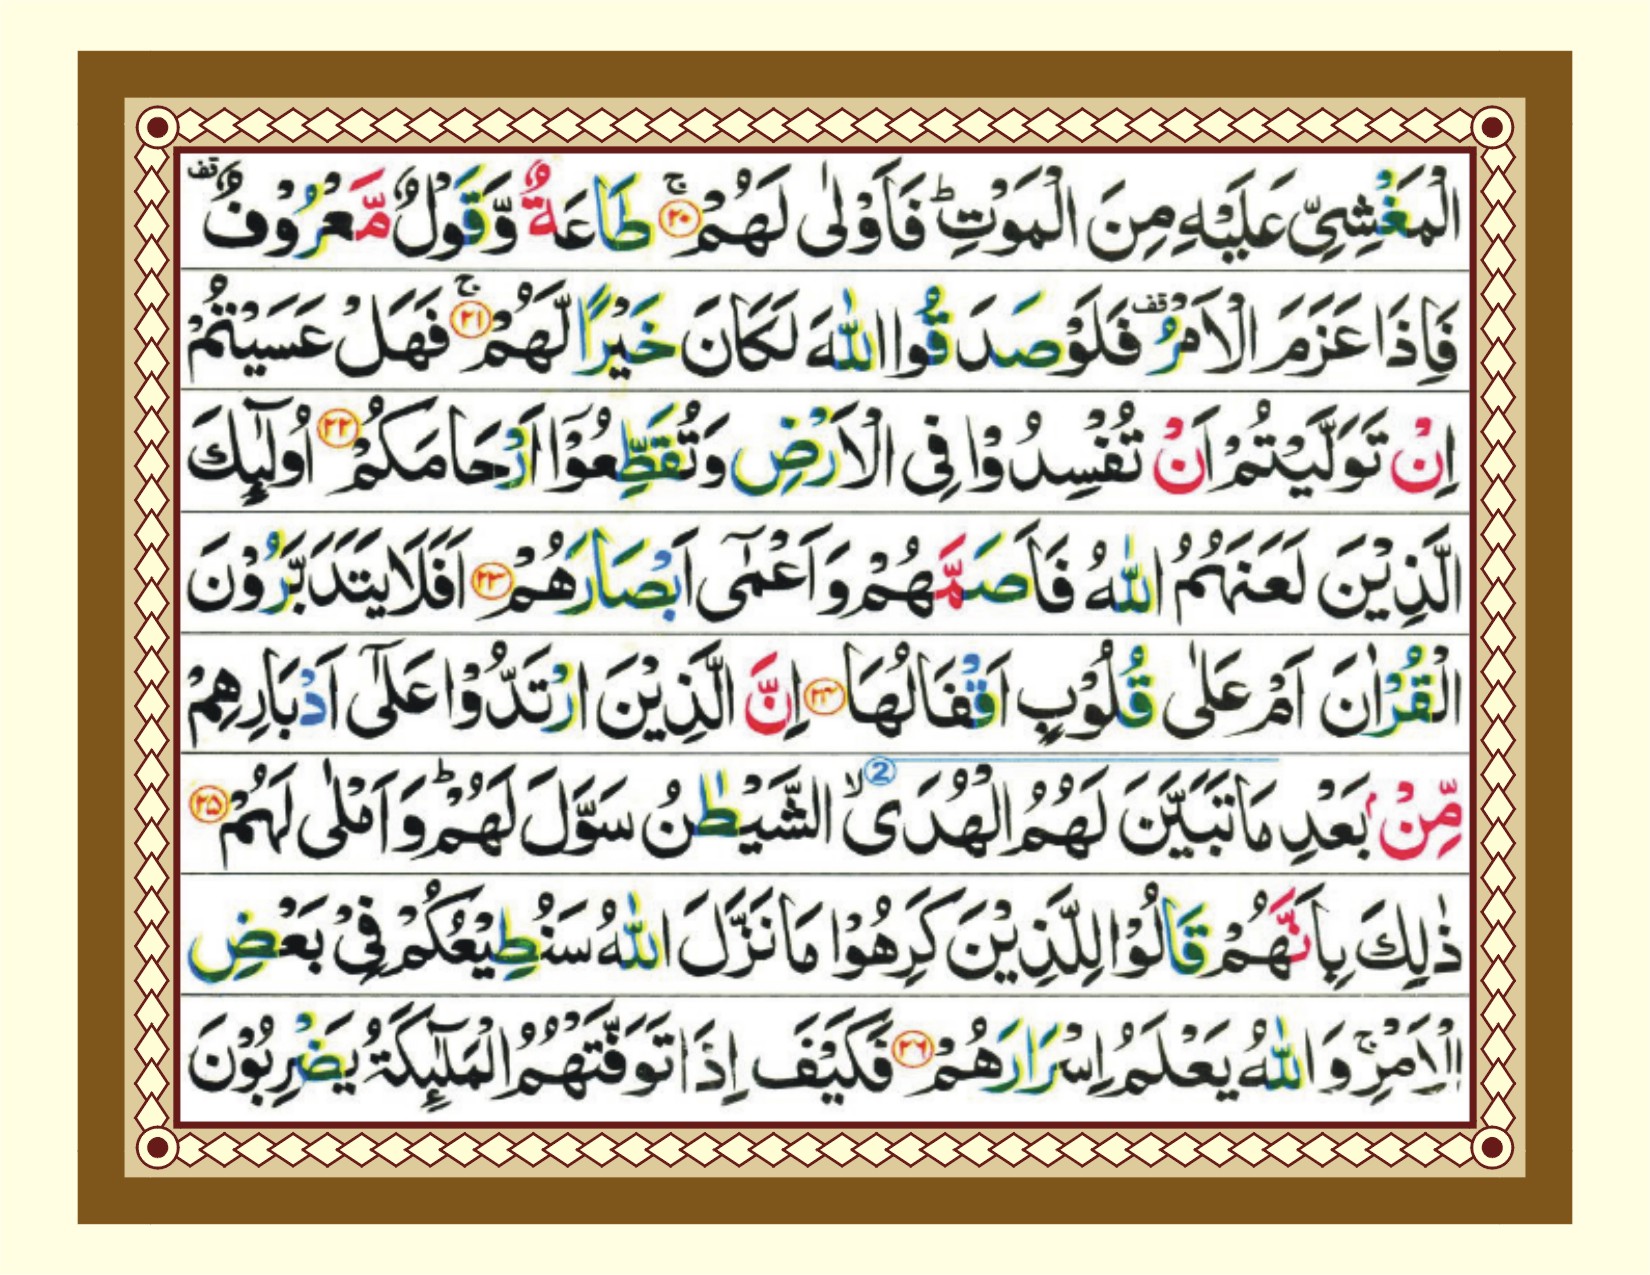 الْمَغْشِيِّ عَلَيْهِ مِنَ الْمَوْتِ ؕ فَاَوْلٰى لَهُمْ ۚ ﴿۲۰﴾ طَاعَةٌ وَّقَوْلٌ مَّعْرُوْفٌ ۟قف
فَاِذَا عَزَمَ الْاَمْرُ ۟قف فَلَوْ صَدَقُوا اللّٰهَ لَكَانَ خَيْرًا لَّهُمْ ۚ ﴿۲۱﴾ فَهَلْ عَسَيْتُمْ
اِنْ تَوَلَّيْتُمْ اَنْ تُفْسِدُوْا فِى الْاَرْضِ وَتُقَطِّعُوْۤا اَرْحَامَكُمْ ﴿۲۲﴾ اُولٰٓئِكَ
الَّذِيْنَ لَعَنَهُمُ اللّٰهُ فَاَصَمَّهُمْ وَاَعْمٰٓى اَبْصَارَهُمْ ﴿۲۳﴾ اَفَلَا يَتَدَبَّرُوْنَ
الْقُرْاٰنَ اَمْ عَلٰى قُلُوْبٍ اَقْفَالُهَا ﴿۲۴﴾ اِنَّ الَّذِيْنَ ارْتَدُّوْا عَلٰٓى اَدْبَارِهِمْ
مِّنْۢ بَعْدِ مَا تَبَيَّنَ لَهُمُ الْهُدَى ۙ ② الشَّيْطٰنُ سَوَّلَ لَهُمْ ؕ وَاَمْلٰى لَهُمْ ﴿۲۵﴾
ذٰلِكَ بِاَنَّهُمْ قَالُوْا لِلَّذِيْنَ كَرِهُوْا مَا نَزَّلَ اللّٰهُ سَنُطِيْعُكُمْ فِىْ بَعْضِ
الْاَمْرِ ۚ وَاللّٰهُ يَعْلَمُ اِسْرَارَهُمْ ﴿۲۶﴾ فَكَيْفَ اِذَا تَوَفَّتْهُمُ الْمَلٰٓئِكَةُ يَضْرِبُوْنَ